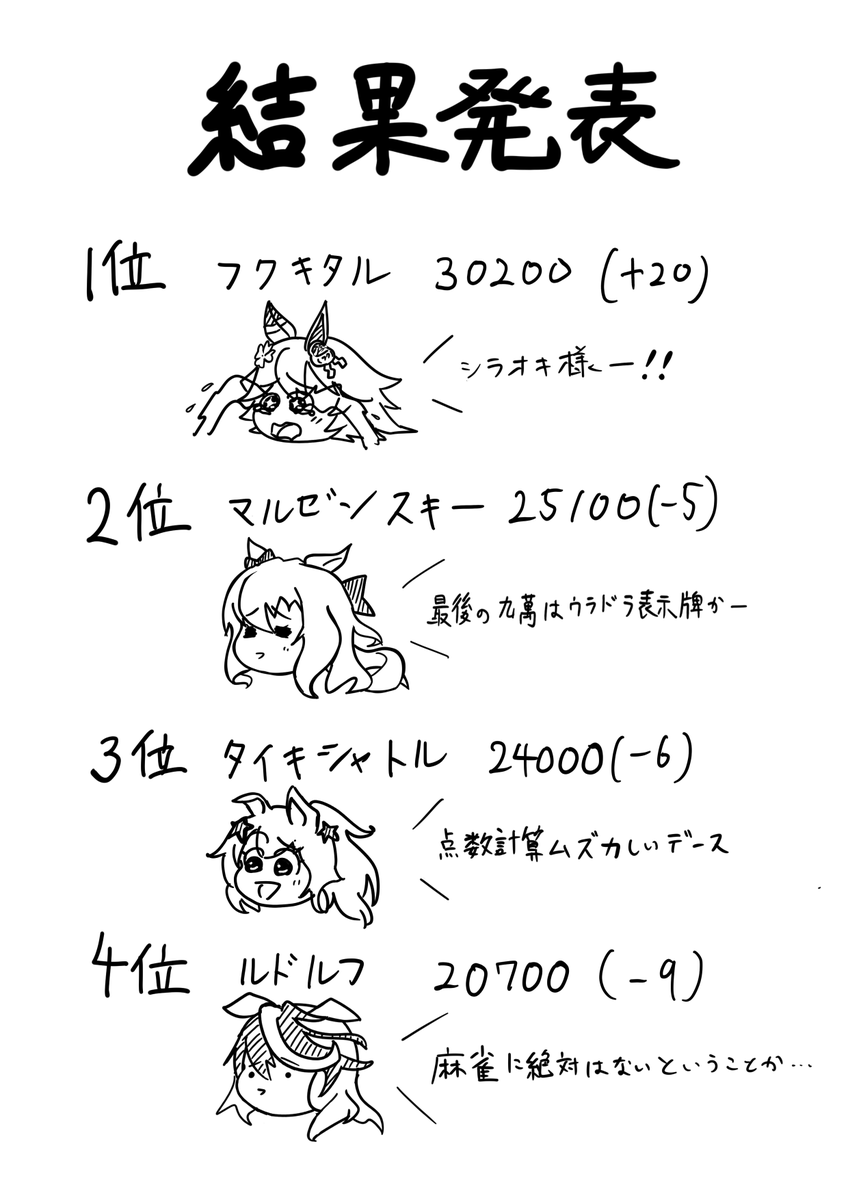 結果発表
1位 フクキタル 30200 (+20)
シラオキ様ー!!
2位 マルゼンスキー 25100(-5)
最後の九萬はウラドラ表示牌かー
3位 タイキシャトル 24000(-6)
点数計算ムズカしいデース
4位 ルドルフ 20700 (-9)
麻雀に絶対はないということか…